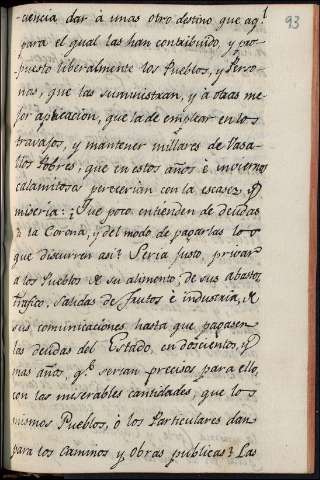 93
cuencia dar à unas otro destino que aql
para el qual las han contribuido, y pro-
puesto liberalmente los Pueblos, y Perso-
nas, que las suministran, y à otras me-
jor aplicacion, que la de emplear en los
travajos, y mantener millares de Vasa-
llos Pobres, que en estos años è inviernos
calamitosos perecerian con la escasez, y
miseria: ¡Que poco entienden de deudas
de la Corona, y del modo de pagarlas los
que discurren asi! Seria justo, privar
a los Pueblos de su alimento, de sus abastos,
trafico, salidas de frutos è industria, de
sus comunicaciones hasta que pagasen
las deudas del Estado, en doscientos, y
mas años, qe. serian precisos para ello,
con las miserables cantidades, que los
mismos Pueblos, ò los Particulares dan
para los caminos y obras publicas? Las